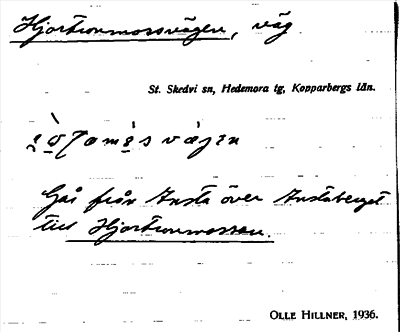 Hjortronmossvägen, väg
St. Skedvi sn, Hedemora tg, Kopparbergs län.
vägen
Går från Ansta över Anstaberget
till Hjortronmossen.
OLLE HILLNER, 1936.